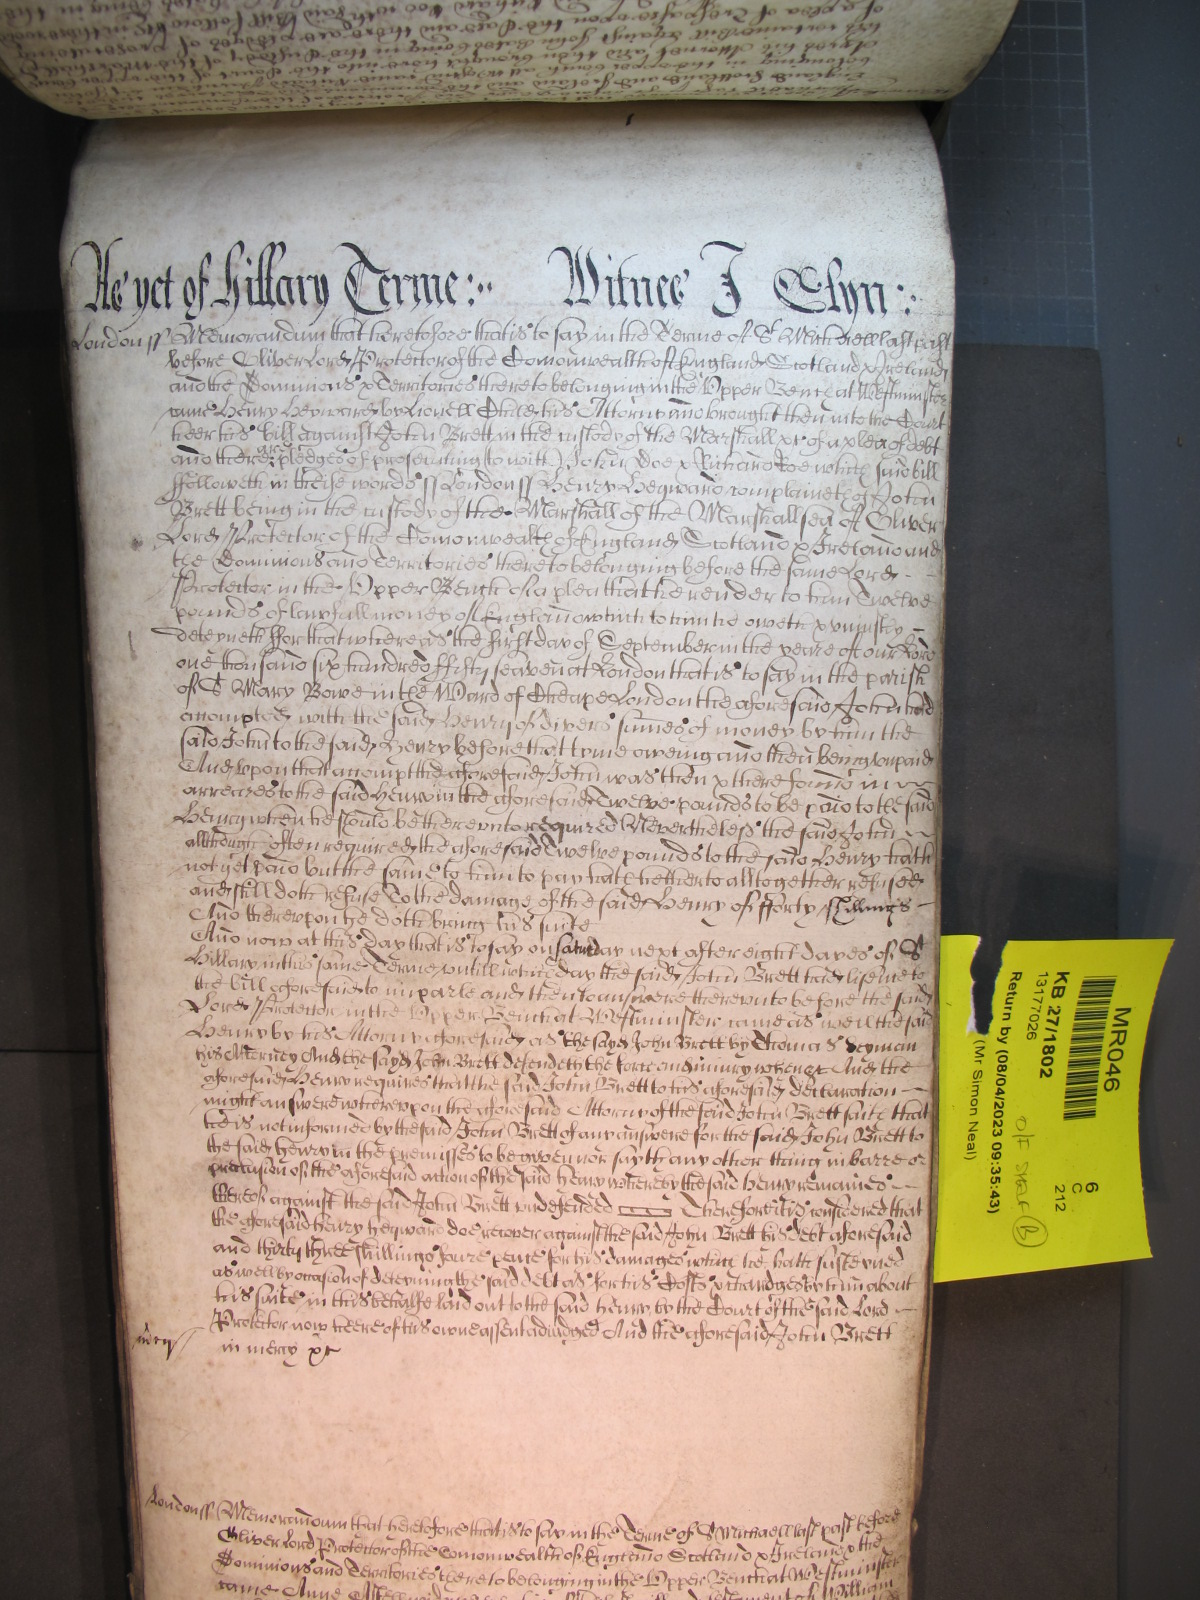 As yet of Hillary Terme:.. Witnes J Glyn:.
London ss Memorandum that heretofore that is to say in the Terme of St Michaell last past
before Oliver Lord Protector of the Comonwealth of England Scotland & Ireland
and the Dominions & Territories thereto belonging in the Upper Bench at Westminster
came Henry Heyward by Lionell his Attorny and brought then into the Court
heer his bill against John Brett in the custody of the Marshall &c of a plea of debt
and there are pledges of prosecuting to witt John Doe & Richard Roe which said bill
ffolloweth in these words ss London ss Henry Heyward complaineth of John
Brett being in the custody of the Marshall of the Marshallsea of Oliver
Lord Protector of the Comonwealth of England Scotland & Ireland and
the Dominions and Territories thereto belonging before the same Lord
Protector in the Upper Bench of a plea that he render to him Twelve
pounds of lawfull money of England which to him he oweth & uniustly
deteyneth ffor that whereas the first day of September in the yeare of our Lord
one thousand six hundred fifty seaven at London that is to say in the parish
of St Mary Bowe in the Ward of Cheape London the aforesaid John had
accompted with the said Henry of divers sumes of money by him the
said John to the said Henry before that tyme oweing and then being unpaid
And upon that accompt the aforesaid John was then & there found in
arreares to the said Henry in the aforesaid Twelve pounds to be paid to the said
Henry when he should be thereunto required Neverthelesse the said John
allthough often required the aforesaid Twelve pounds to the said Henry hath
not yet paid but the same to him to pay hath hitherto alltogether refused
and still doth refuse To the damage of the said Henry of fforty shillings
And thereupon he doth bring his suite
And now at this day that is to say on Saturday next after eight dayes of St
Hillary in this same Terme untill which day the said John Brett had license to
the bill aforesaid to imparle and then to answere thereunto before the said
Lord Protector in the Upper Bench at Westminster came as well the said
Henry by his Attorny aforesaid as the sayd John Brett by Thomas
his Attorney And the sayd John Brett defendeth the force and iniury when &c And the
aforesaid Henry requires that the said John Brett to his aforesaid declaration
might answere whereupon the aforesaid Attorny of the said John Brett saith that
he is not informed by the said John Brett of any answere for the said John Brett to
the said Henry in the premisses to be given nor sayth any other thing in barre or
preclusion of the aforesaid action of the said Henry whereby the said Henry remained
thereof against the said John Brett undefended Therefore it is considered that
the aforesaid Henry Heyward doe recover against the said John Brett his debt aforesaid
and thirty three shillings foure pence for his damages which he hath susteyned
as well by occasion of deteyning the said debt as for his Costs & chardges by him about
his suite in this behalfe laid out to the said Henry by the Court of the said Lord
Protector now heere of his owne assent adiudged And the aforesaid John Brett
in mercy &c
mercy
London ss Memorandum that heretofore that is to say in the Terme of St Michaell last past before
Oliver Lord Protector of the Comonwealth of England Scotland & Ireland & the
Dominions and Territories thereto belonging in the Upper Bench at Westminster
came Anne William
MR046
6
C
212
KB 27/1802
13177026
Return by (08/04/2023 09:35:43)
(Mr Simon Neal)